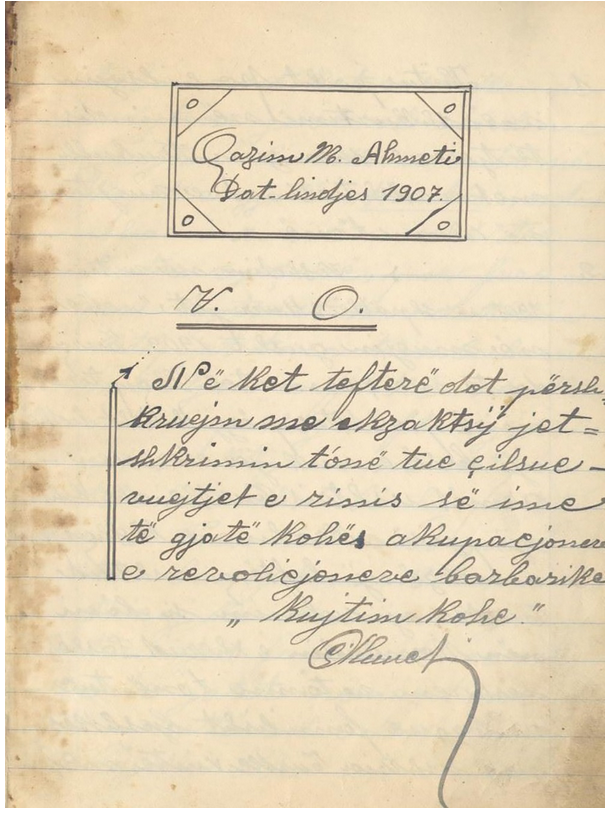 Qazim M. Ahmeti
Dat-lindjes 1907.
V. O.
Në ket tefterë dot përsh-
kruejm me ekzaktsij jet=
shkrimin tónë tue çilsue-
vuejtjet e rinis së ime
të gjatë kohës akupacjoneve
e revolicjoneve barbarike
„ Kujtim Kohe."